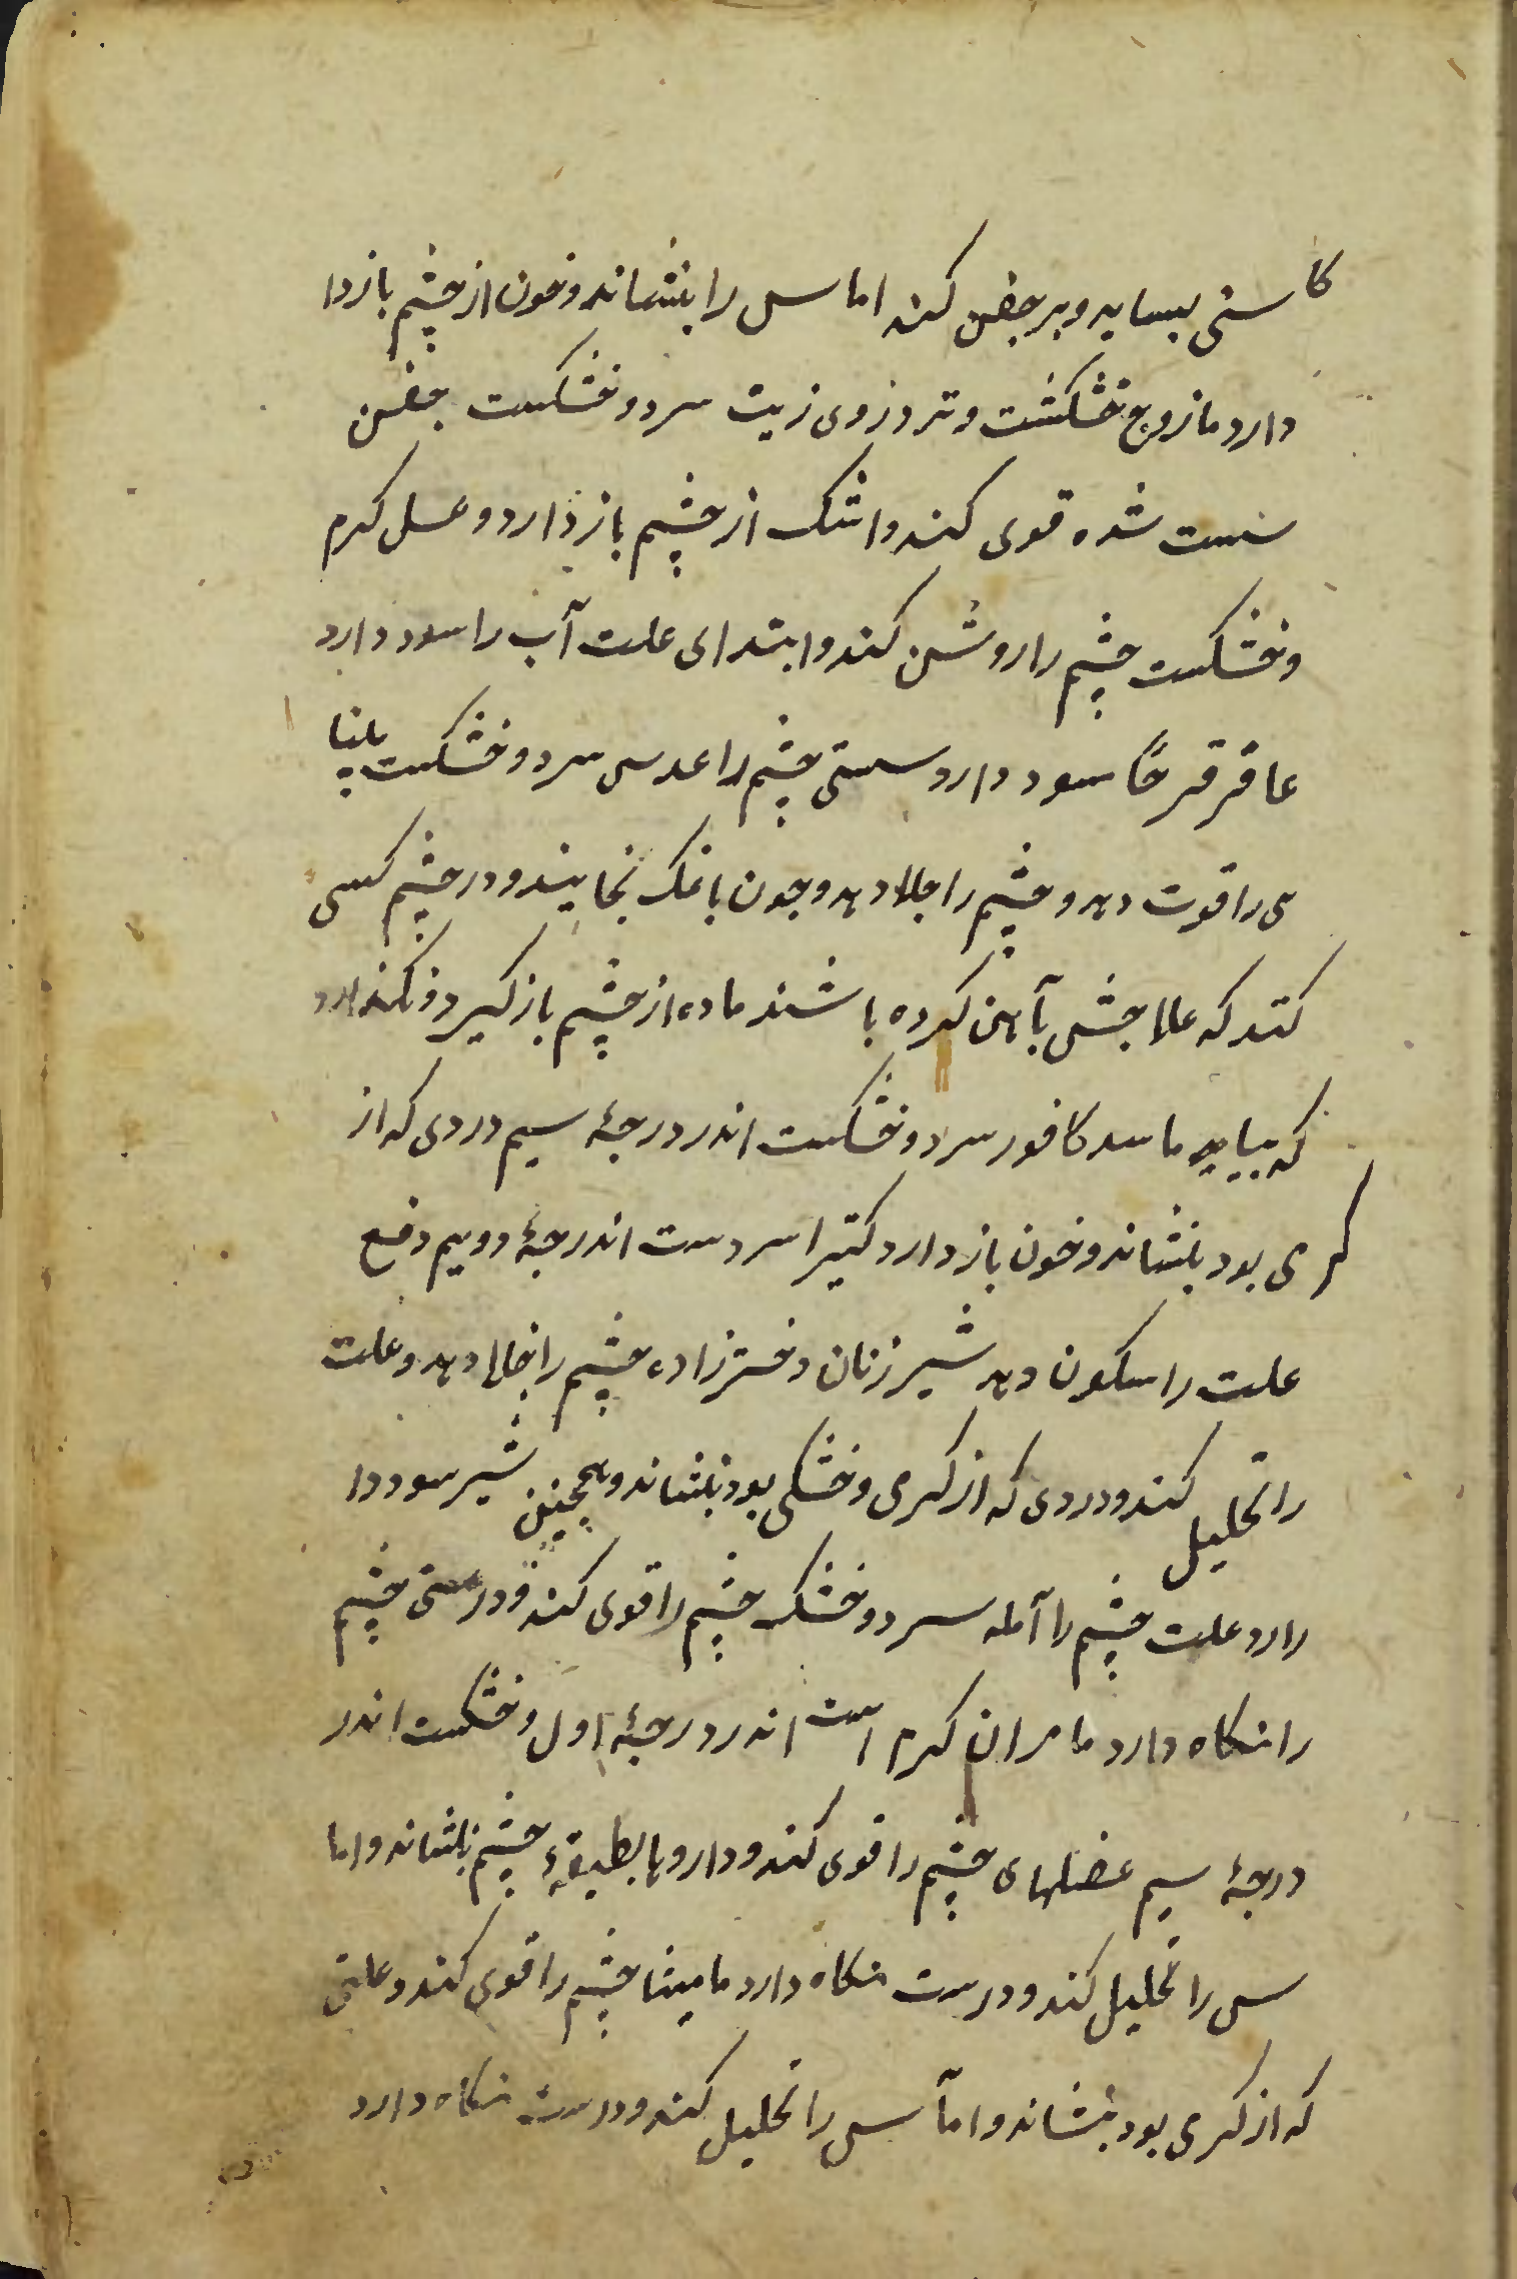 کاسنی بساید و بر جفن کند اماس را بنشاند و خون از چشم بازدا
دارد مازوج خشکست و تر و زوی زیت سرد و خشکست جفن
سست شده قوی کند و اشک از چشم باز دارد و عسل کرم
و خشکست چشم را روشن کند و ابتدای علت آب را سود دارد
عاقرقرحا سود دارد سستی چشم را عدس سرد و خشکست بینا
ی را قوت دهد و چشم را جلا دهد و چون با نمک بخایند و در چشم کسی
کنند که علاجش بآهن کرده باشند ماده از چشم باز کیرد و نکذارد
که بیاید کافور سرد و خشکست اندر درجهٔ سیم دردی که از
کرمی بود بنشاند و خون باز دارد کتیرا سردست اندر جهٔ دویم دفع
علت را سکون دهد شیر زنان دختر زاده چشم را جلا دهد و علت
را تحلیل کند و دردی که از کرمی و خشکی بود بنشاند و همچنین شیر سود دا
رد علت چشم را آمله سرد و خشک چشم را قوی کند و درستی چشم
را نکاه دارد مامران کرم است اندر درجهٔ اول و خشکست اندر
درجهٔ سیم عضلهای چشم را قوی کند و داروها بطبقهٔ چشم بنشاند و اما
س را تحلیل کند و درست نکاه دارد مامیثا چشم را قوی کند و علتی
که از کرمی بود بنشاند و امآس را تحلیل کند و درست نکاه دارد